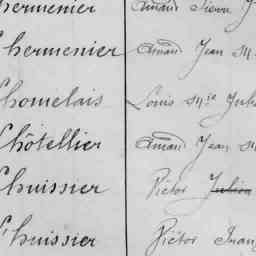 hermenier Amand Pierre J
hermenier Amand Jean M
homelais Louis M.ie Jul
hôtellier Amand Jean M
huissier Victor Julien
L'huissier Victor Fran